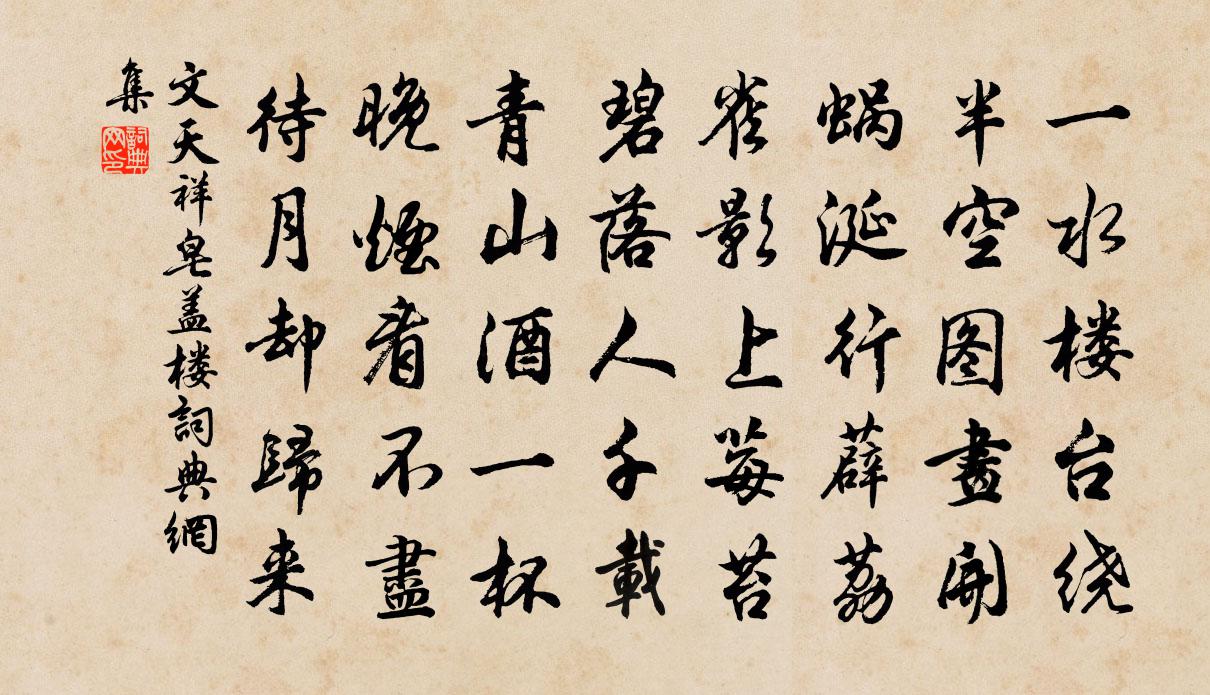 一水楼台绕
半空图畫開
蜗涎行薜荔
雀影上莓苔
碧落人千載
青山酒一杯
晚煙看不盡
待月却歸来
文天祥皂盖楼詞典網
集
詞典网印